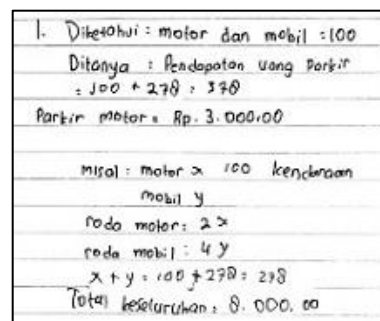 1. Diketahui : motor dan mobil : 100
Ditanya : Pendapatan uang parkir
: 100 + 278 : 378
Parkir motor = Rp. 3.000,00
misal : motor x 100 kendaraan
mobil y
roda motor : 2x
roda mobil : 4y
x + y : 100 + 278 = 278
Total keseluruhan = 8.000.00